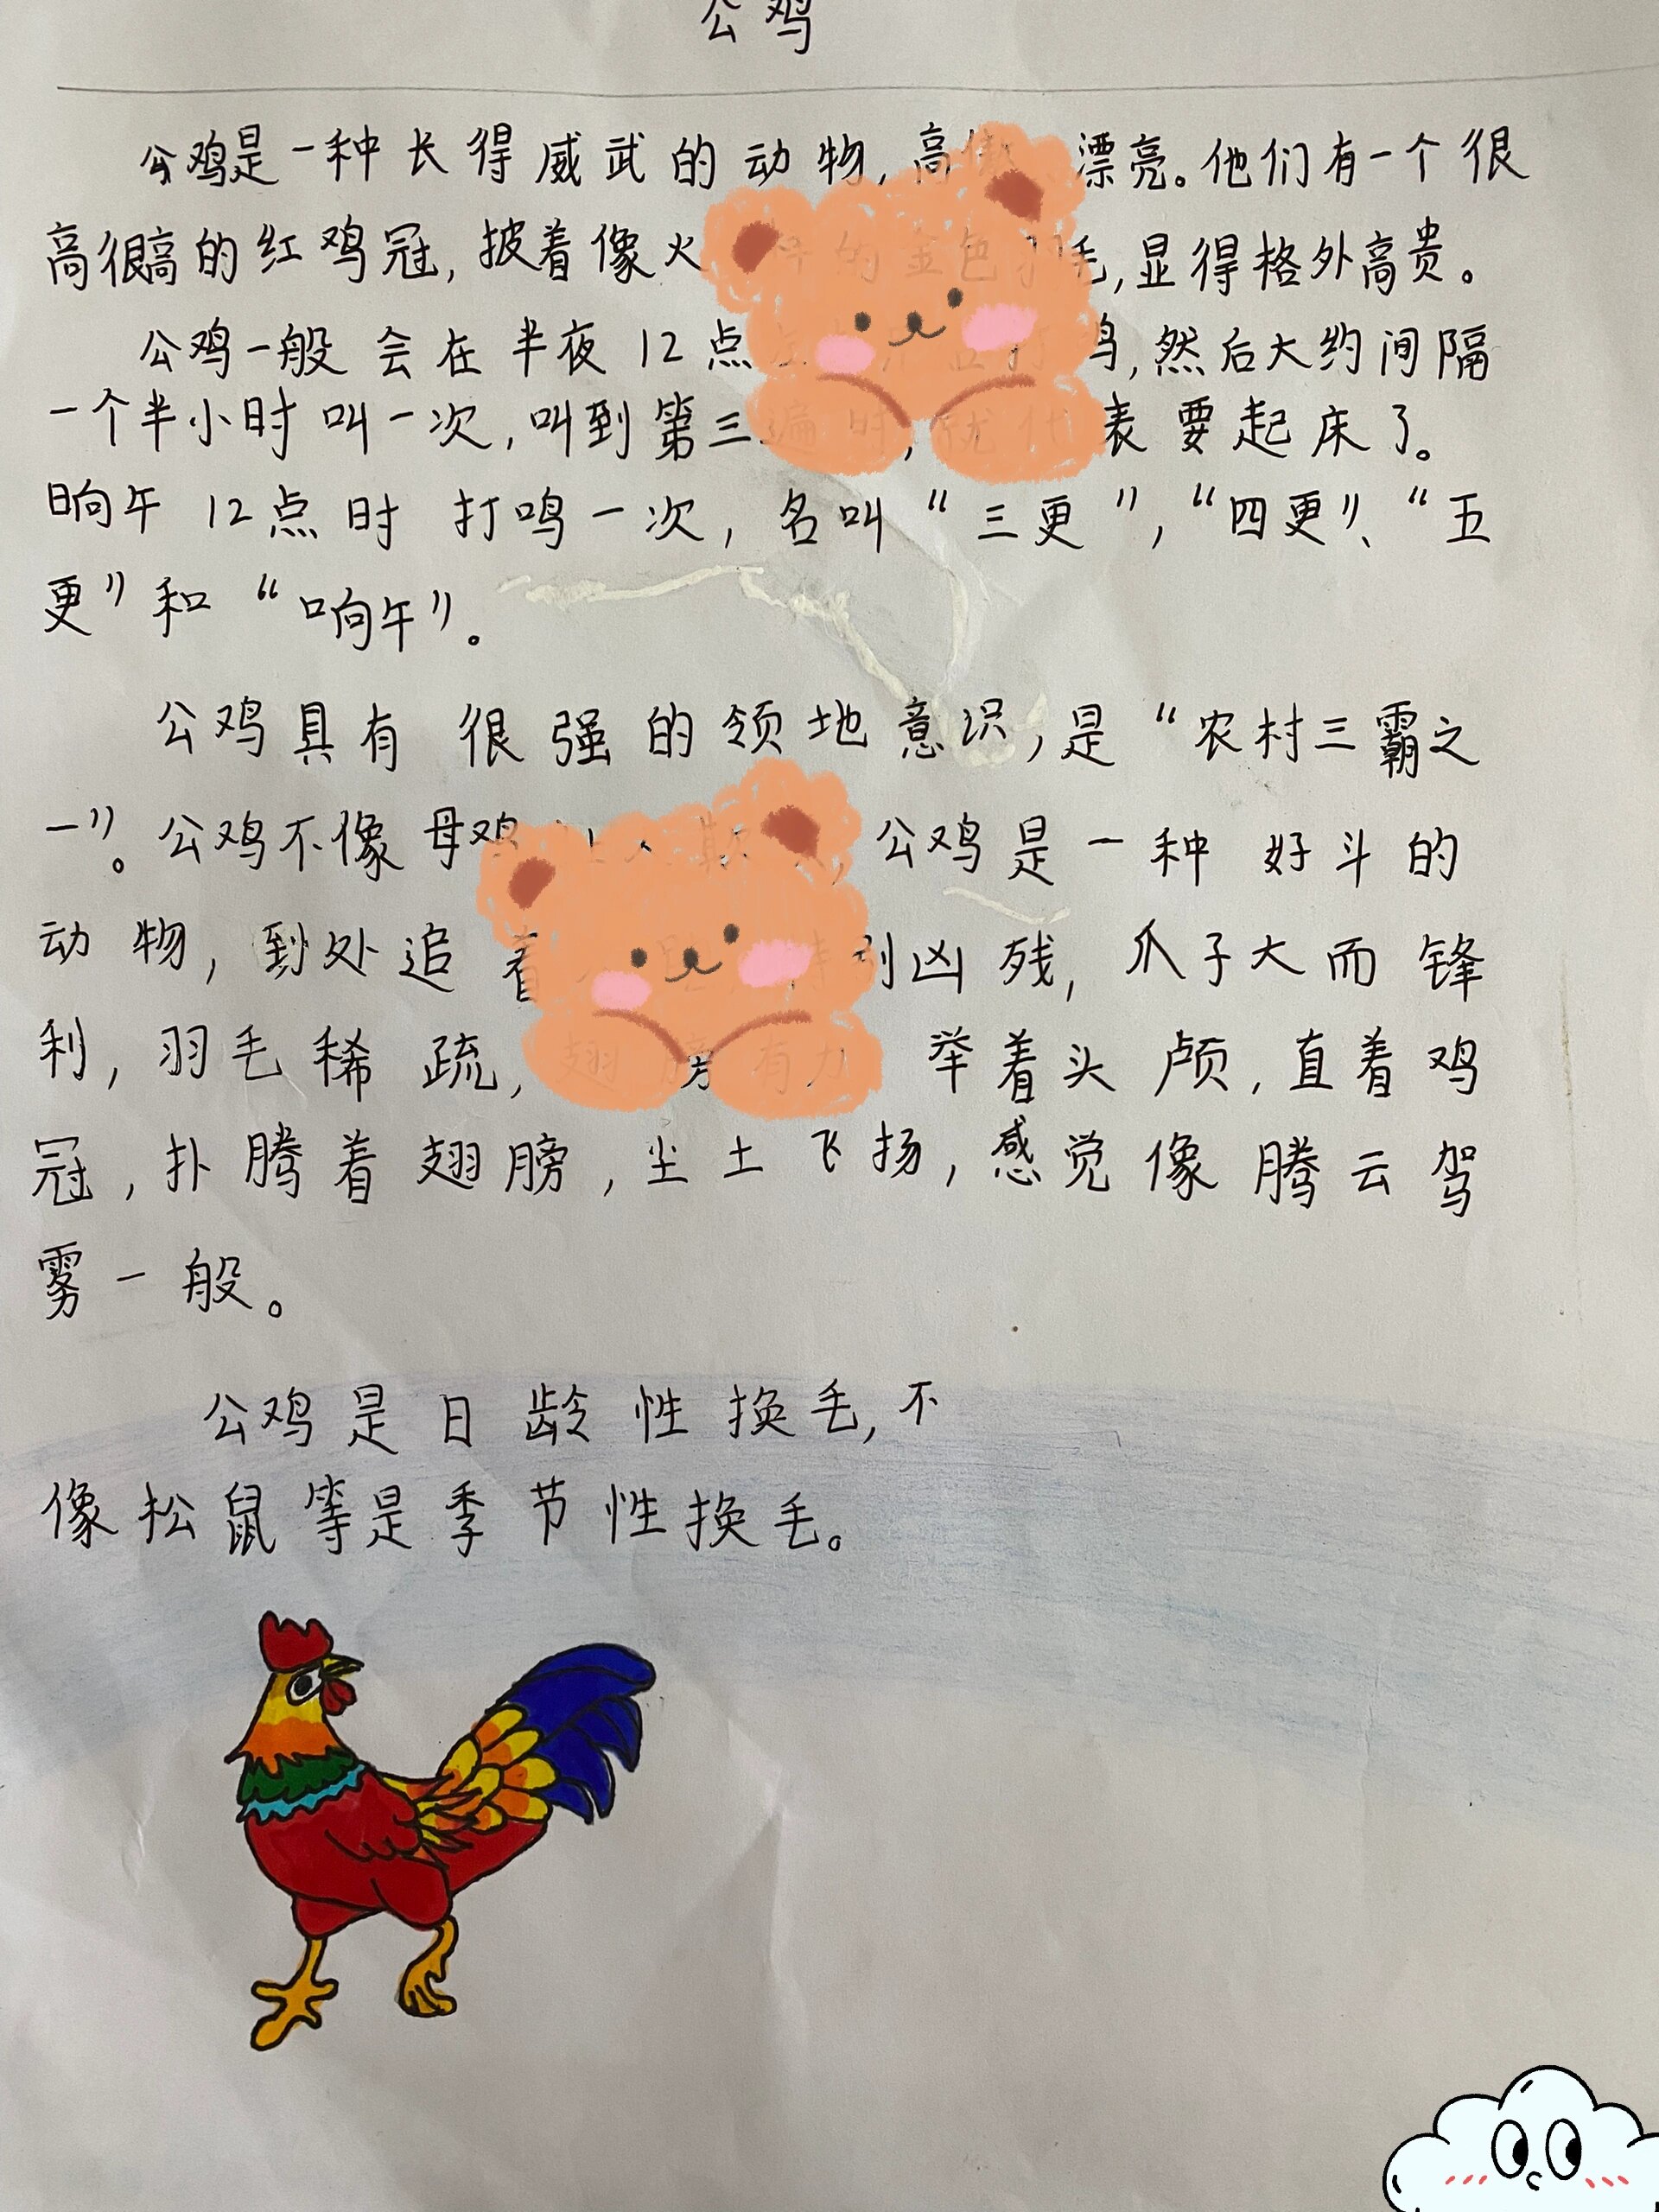 公鸡
公鸡是一种长得威武的动物,高 漂亮。他们有一个很
高很高的红鸡冠,披着像火 的金色羽毛,显得格外高贵。
公鸡一般会在半夜12点 打鸣,然后大约间隔
一个半小时叫一次,叫到第三遍时,就代表要起床了。
晌午12点时打鸣一次,名叫“三更”,“四更”、“五
更”和“响午”。
公鸡具有很强的领地意识,是“农村三霸之
一”。公鸡不像母鸡 ,公鸡是一种好斗的
动物,到处追着 凶残,爪子大而锋
利,羽毛稀疏,翅膀有力 举着头颅,直着鸡
冠,扑腾着翅膀,尘土飞扬,感觉像腾云驾
雾一般。
公鸡是日龄性换毛,不
像松鼠等是季节性换毛。